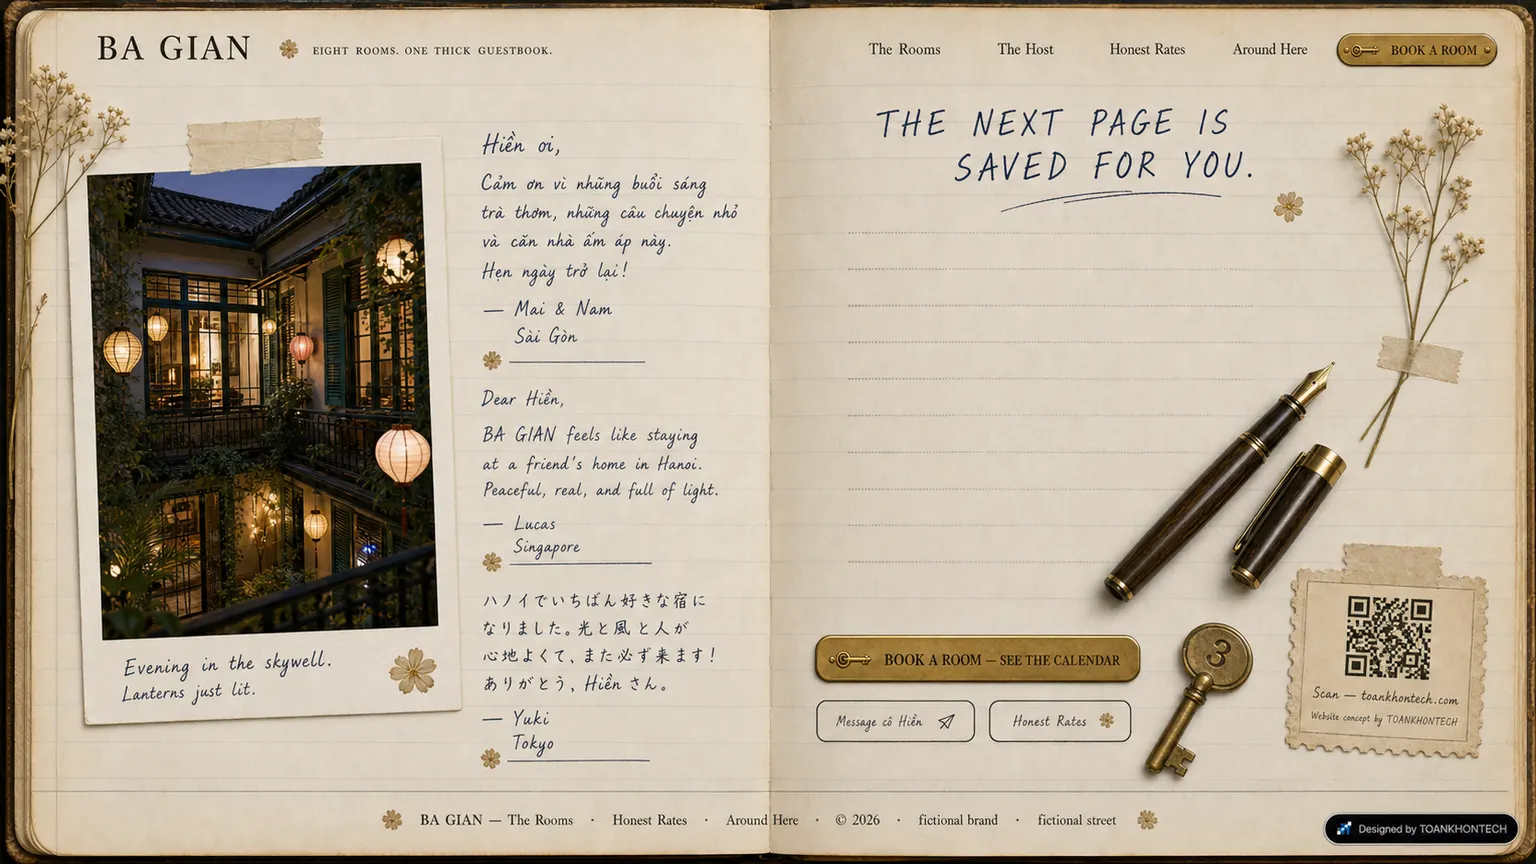 BA GIAN
EIGHT ROOMS. ONE THICK GUESTBOOK.
The Rooms
The Host
Honest Rates
Around Here
BOOK A ROOM
Hiền ơi,
Cảm ơn vì những buổi sáng
trà thơm, những câu chuyện nhỏ
và căn nhà ấm áp này.
Hẹn ngày trở lại!
— Mai & Nam
Sài Gòn
Dear Hiền,
BA GIAN feels like staying
at a friend's home in Hanoi.
Peaceful, real, and full of light.
— Lucas
Singapore
ハノイでいちばん好きな宿に
なりました。光と風と人が
心地よくて、また必ず来ます!
ありがとう, Hiền さん。
— Yuki
Tokyo
Evening in the skywell.
Lanterns just lit.
THE NEXT PAGE IS
SAVED FOR YOU.
BOOK A ROOM — SEE THE CALENDAR
Message cô Hiền
Honest Rates
3
Scan — toankhontech.com
Website concept by TOANKHONTECH
BA GIAN — The Rooms · Honest Rates · Around Here · © 2026 · fictional brand · fictional street
Designed by TOANKHONTECH